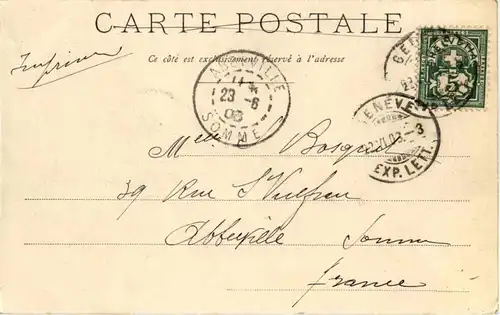 CARTE POSTALE
Ce côté est exclusivement réservé à l'adresse
Imprimé
ABBEVILLE
23 -6
03
SOMME
GENÈVE
22.VI.03.-3
EXP. LETT.
Melle Bosquet
39 Rue St Vulfran
Abbeville Somme
France